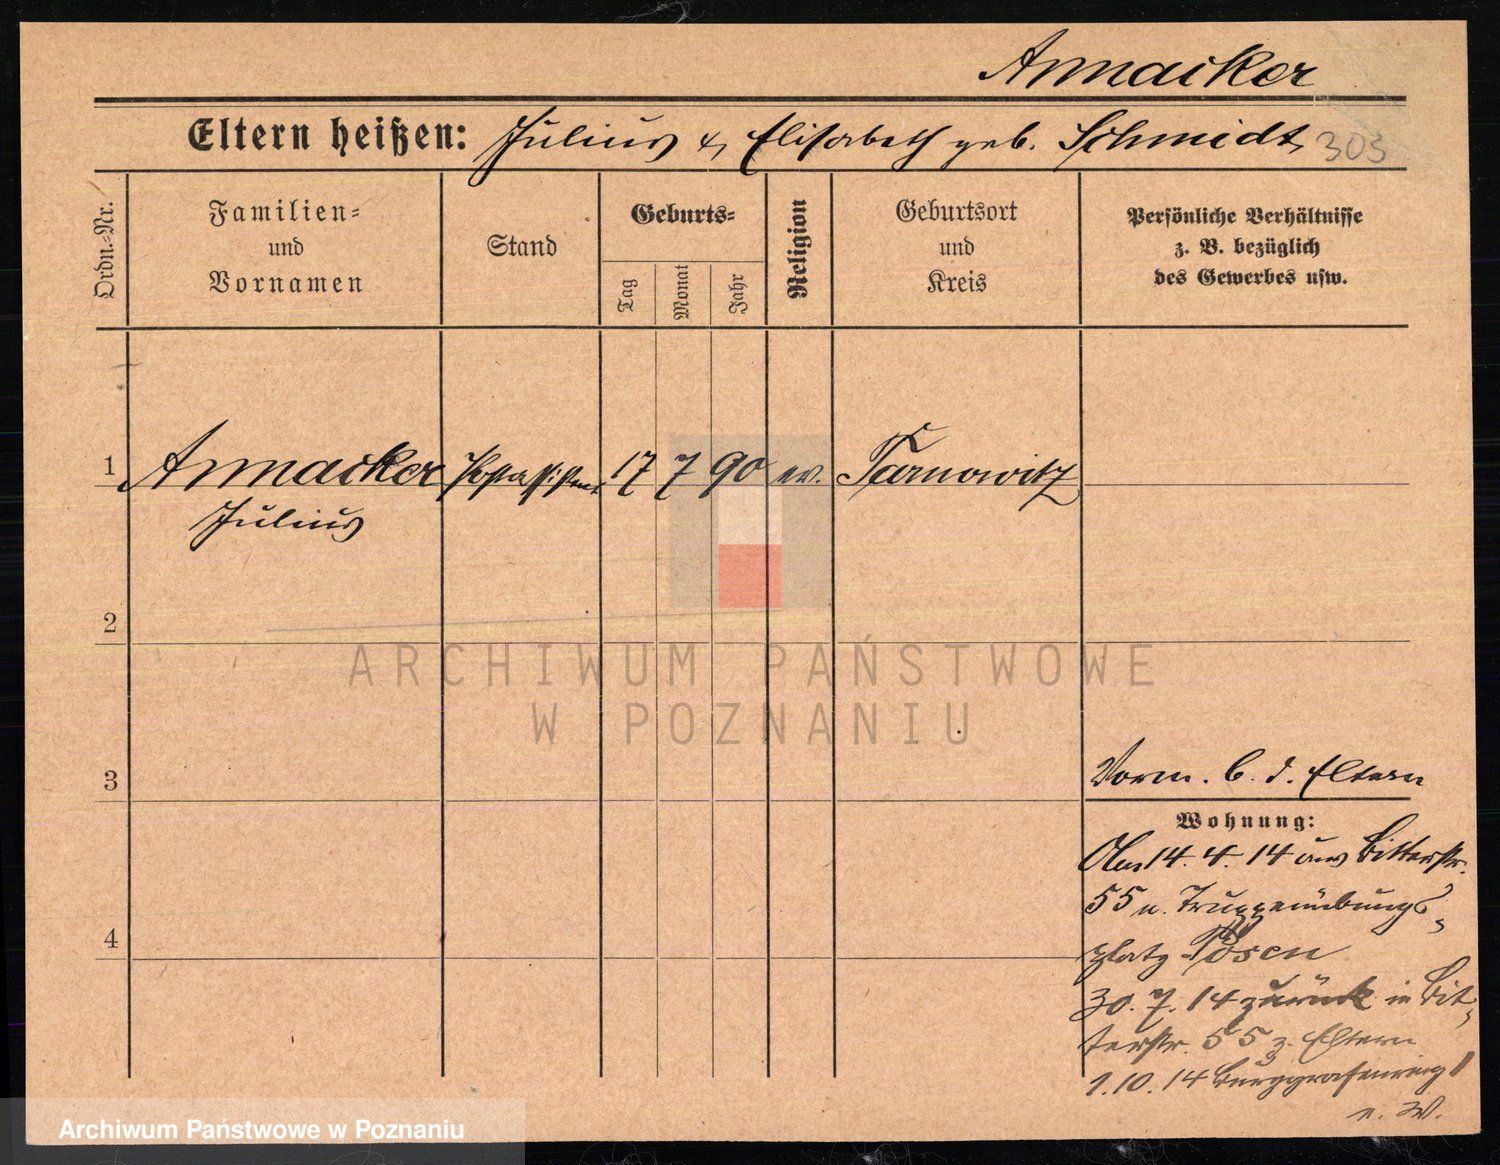 Annacker
Eltern heißen: Julius & Elisabeth geb. Schmidt 303
Ordn.-Nr.
Familien-
und
Vornamen
Stand
Geburts-
Tag
Monat
Jahr
Religion
Geburtsort
und
Kreis
Persönliche Verhältnisse
z. B. bezüglich
des Gewerbes usw.
1 Annacker Postassistent 17 7 90 ev. Tarnowitz
Julius
2
ARCHIWUM PAŃSTWOWE
W POZNANIU
3
Vorm. b. d. Eltern
Wohnung:
14. 4. 14 aus Bitterstr.
55 n. Truppenübungs-
platz Posen
4
30. 7. 14 zurück in Bit-
terstr. 55 z. Eltern
1. 10. 14 Burggrafenring 1
Archiwum Państwowe w Poznaniu